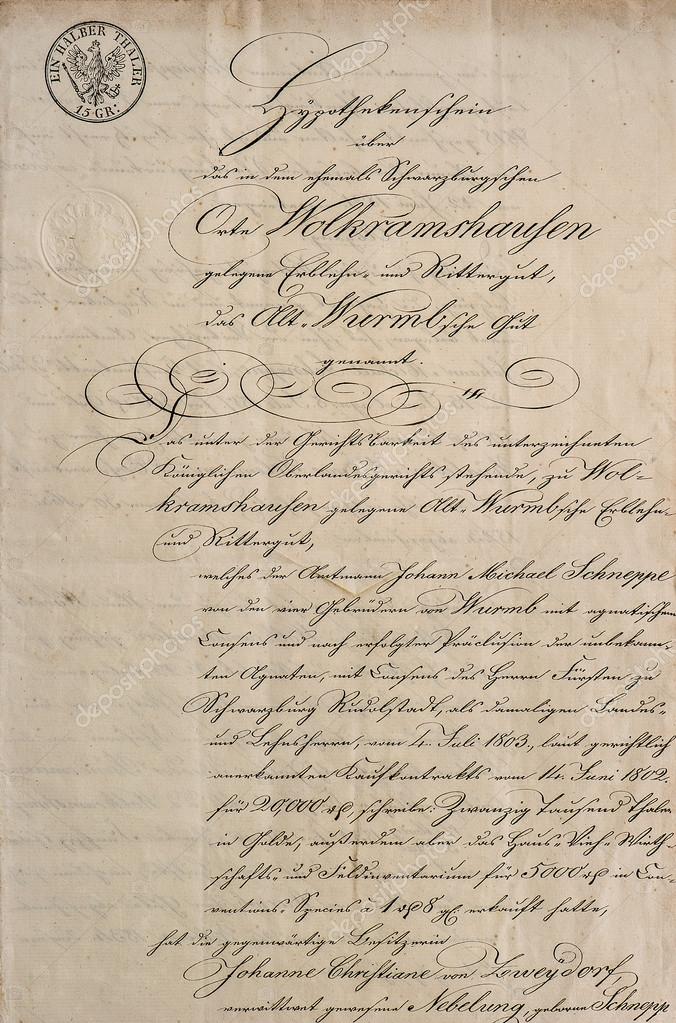 EIN HALBER THALER
15 GR:
Hypothekenschein
über
das in dem ehemals Schwarzburgschen
Orte Wolkramshausen
gelegene Erblehn- und Rittergut,
das Alt-Wurmbsche Gut
genannt.
Das unter der Gerichtsbarkeit des unterzeichneten
Königlichen Oberlandesgerichts stehende, zu Wol-
kramshausen gelegene Alt-Wurmbsche Erblehn-
und Rittergut,
welches der Amtmann Johann Michael Schneppe
von den vier Gebrüdern von Wurmb mit agnatischem
Consens und nach erfolgter Präclusion der unbekann-
ten Agnaten, mit Consens des Herrn Fürsten zu
Schwarzburg Rudolstadt, als damaligen Landes-
und Lehnsherrn, vom 4. Juli 1803., laut gerichtlich
anerkannten Kaufkontrakts vom 14. Juni 1802.
für 20,000 rß, schreibe: Zwanzig Tausend Thaler
in Golde, außerdem aber das Haus- Vieh- Wirth-
schafts- und Feldinventarium für 5000 rß in Con-
ventions-Species à 1 rß 8 gl. erkauft hatte,
hat die gegenwärtige Besitzerin
Johanne Christiane von Zweydorf,
verwittwet gewesene Nebelung, geborne Schnepp
depositphotos